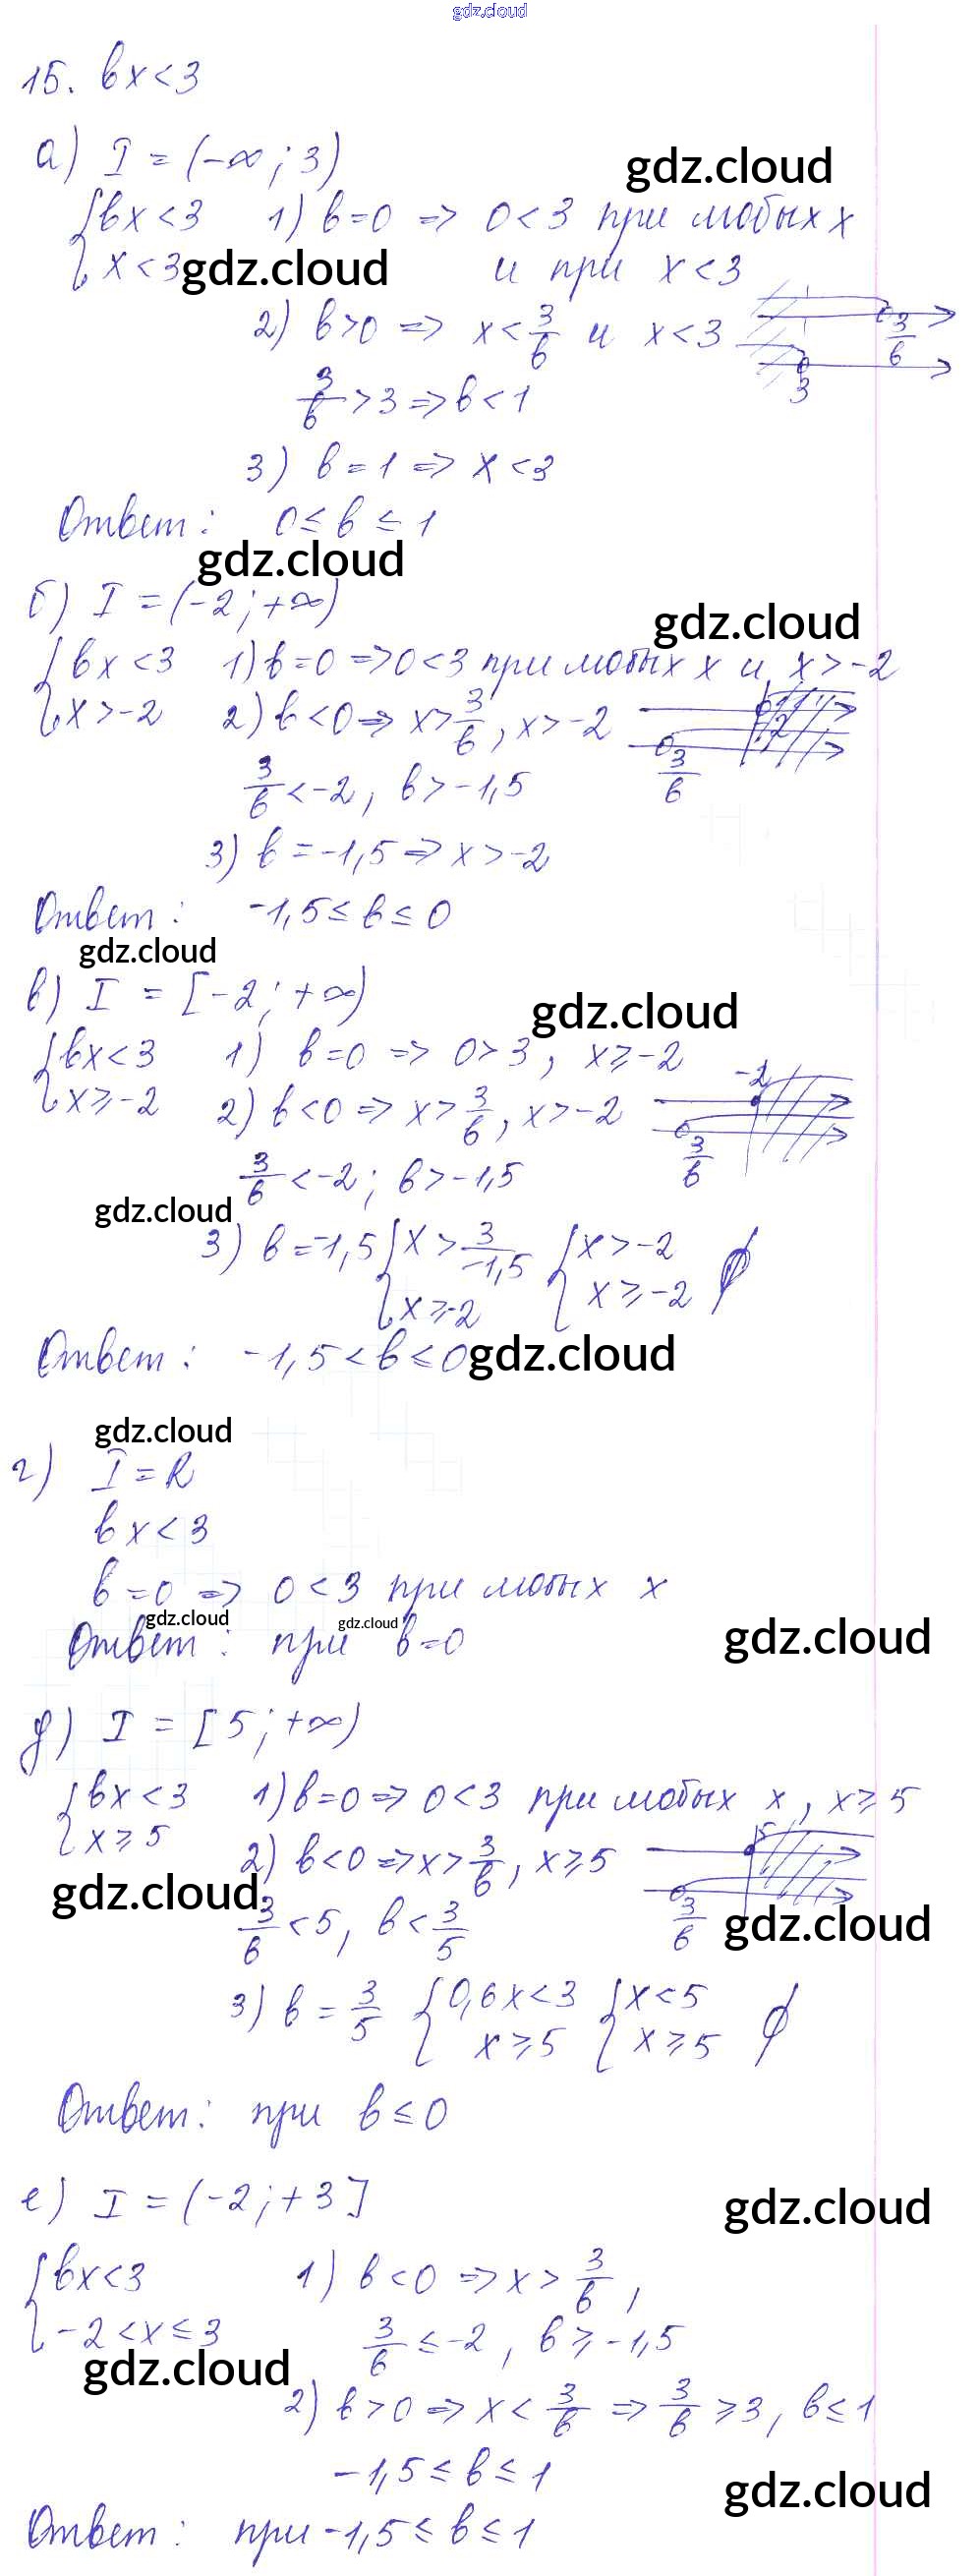 gdz.cloud
15. bx<3
а) I = (-∞; 3) gdz.cloud
{bx<3 1) b=0 => 0<3 при любых x
{x<3 gdz.cloud и при x<3
2) b>0 => x<3/b и x<3 3/b
3/b>3 => b<1 3
3) b=1 => x<3
Ответ: 0≤b≤1
gdz.cloud
б) I = (-2; +∞) gdz.cloud
{bx<3 1) b=0 => 0<3 при любых x и x>-2
{x>-2 2) b<0 => x>3/b, x>-2 -2
3/b<-2, b>-1,5 3/b
3) b=-1,5 => x>-2
Ответ: -1,5≤b≤0
gdz.cloud
в) I = [-2; +∞) gdz.cloud
{bx<3 1) b=0 => 0>3, x≥-2
{x≥-2 2) b<0 => x>3/b, x>-2 -2
3/b<-2; b>-1,5 3/b
gdz.cloud
3) b=-1,5 {x>3/-1,5 {x>-2
{x≥-2 {x≥-2 ∅
Ответ: -1,5<b≤0 gdz.cloud
gdz.cloud
г) I = R
bx<3
b=0 => 0<3 при любых x
gdz.cloud gdz.cloud
Ответ: при b=0 gdz.cloud
д) I = [5; +∞)
{bx<3 1) b=0 => 0<3 при любых x, x≥5
{x≥5 2) b<0 => x>3/b, x≥5 5
gdz.cloud
3/b<5, b<3/5 3/b gdz.cloud
3) b=3/5 {0,6x<3 {x<5
{x≥5 {x≥5 ∅
Ответ: при b≤0
е) I = (-2; +3] gdz.cloud
{bx<3 1) b<0 => x>3/b,
{-2<x≤3 3/b≤-2, b≥-1,5
gdz.cloud
2) b>0 => x<3/b => 3/b≥3, b≤1
-1,5≤b≤1
gdz.cloud
Ответ: при -1,5≤b≤1